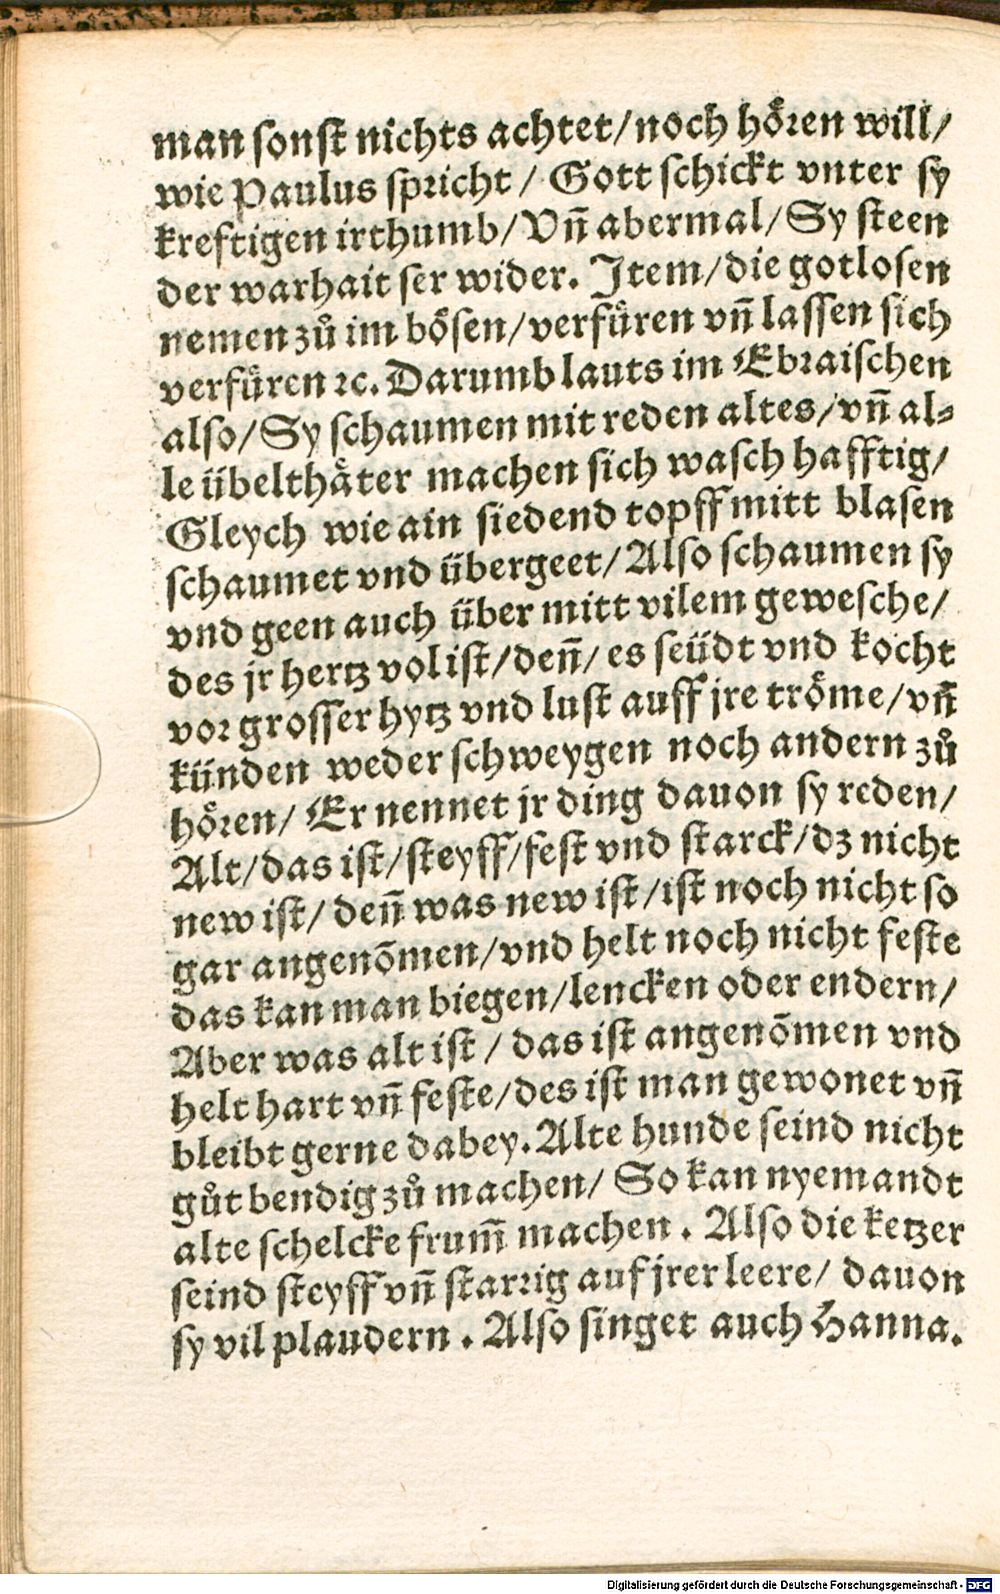 man sonst nichts achtet/noch hoͤren will/
wie Paulus spricht / Gott schickt vnter sy
kreftigen irthumb/Vñ abermal/Sy steen
der warhait ser wider. Item/die gotlosen
nemen zů im boͤsen/verfuͤren vñ lassen sich
verfuͤren ꝛc. Darumb lauts im Ebraischen
also/Sy schaumen mit reden altes/vñ al-
le übelthaͤter machen sich waschhafftig/
Gleych wie ain siedend topff mitt blasen
schaumet vnd übergeet/Also schaumen sy
vnd geen auch über mitt vilem gewesche/
des jr hertz vol ist/deñ/es seüdt vnd kocht
vor grosser hytz vnd lust auff jre troͤme/vñ
künden weder schweygen noch andern zů
hoͤren/ Er nennet jr ding dauon sy reden/
Alt/das ist/steyff/fest vnd starck/dz nicht
new ist/ deñ was new ist/ist noch nicht so
gar angenõmen/vnd helt noch nicht feste
das kan man biegen/lencken oder endern/
Aber was alt ist / das ist angenõmen vnd
helt hart vñ feste/des ist man gewonet vñ
bleibt gerne dabey. Alte hunde seind nicht
gůt bendig zů machen/ So kan nyemandt
alte schelcke frum̃ machen . Also die ketzer
seind steyff vñ starrig auf jrer leere/ dauon
sy vil plaudern . Also singet auch Hanna.
Digitalisierung gefördert durch die Deutsche Forschungsgemeinschaft - DFG